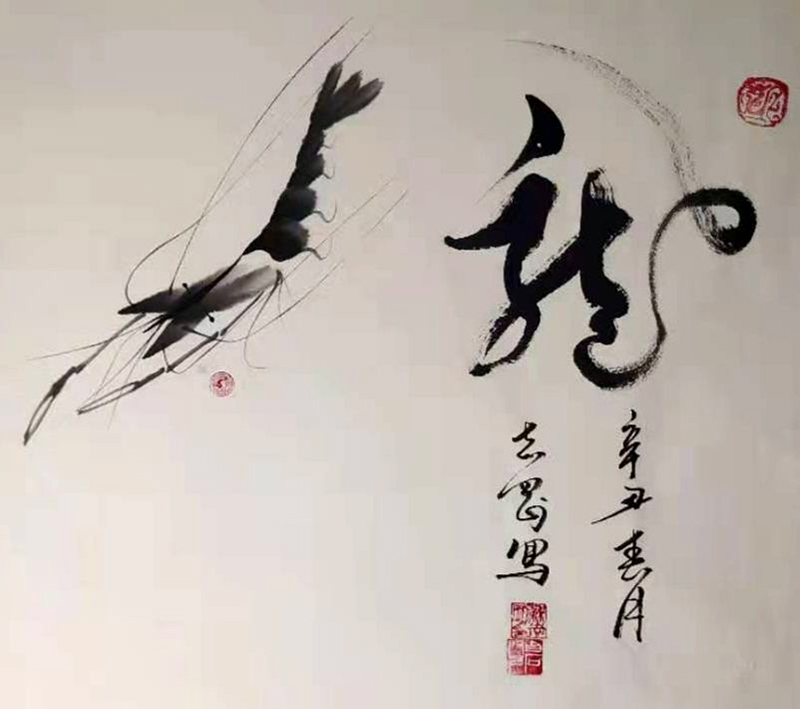 龍
辛丑春月
志罡写